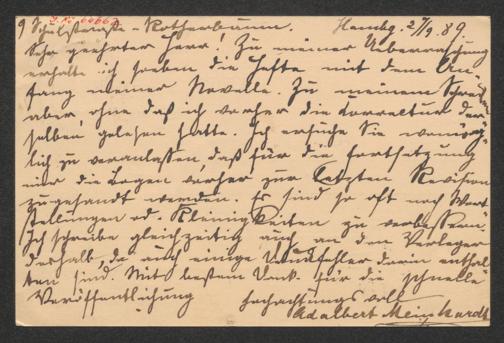 9 Schulstraße - Rotherbaum. Hambg. 2/9. 89.
Sehr geehrter Herr! Zu meiner Ueberraschung
erhalte ich soeben die Hefte mit dem An-
fang meiner Novelle. Zu meinem Schrecken
aber, ohne daß ich vorher die Correctur der-
selben gelesen hatte. Ich ersuche Sie womög-
lich zu veranlassen, daß für die Fortsetzung
mir die Bogen vorher zur letzten Revision
zugesandt werden. Es sind so oft noch Wort
stellungen od. Kleinigkeiten zu verbessern.
Ich schreibe gleichzeitig auch an den Verleger
deshalb, da auch einige Druckfehler darin enthal-
ten sind. Mit bestem Dank für die schnelle
Veröffentlichung hochachtungsvoll
Adalbert Meinhardt